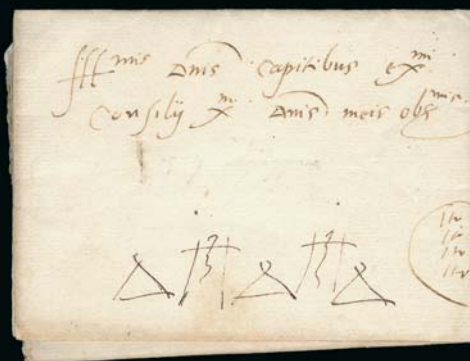 Ill^mis Dnis Capitibus ex^mi
Consilij X^m Dnis meis obs^mis